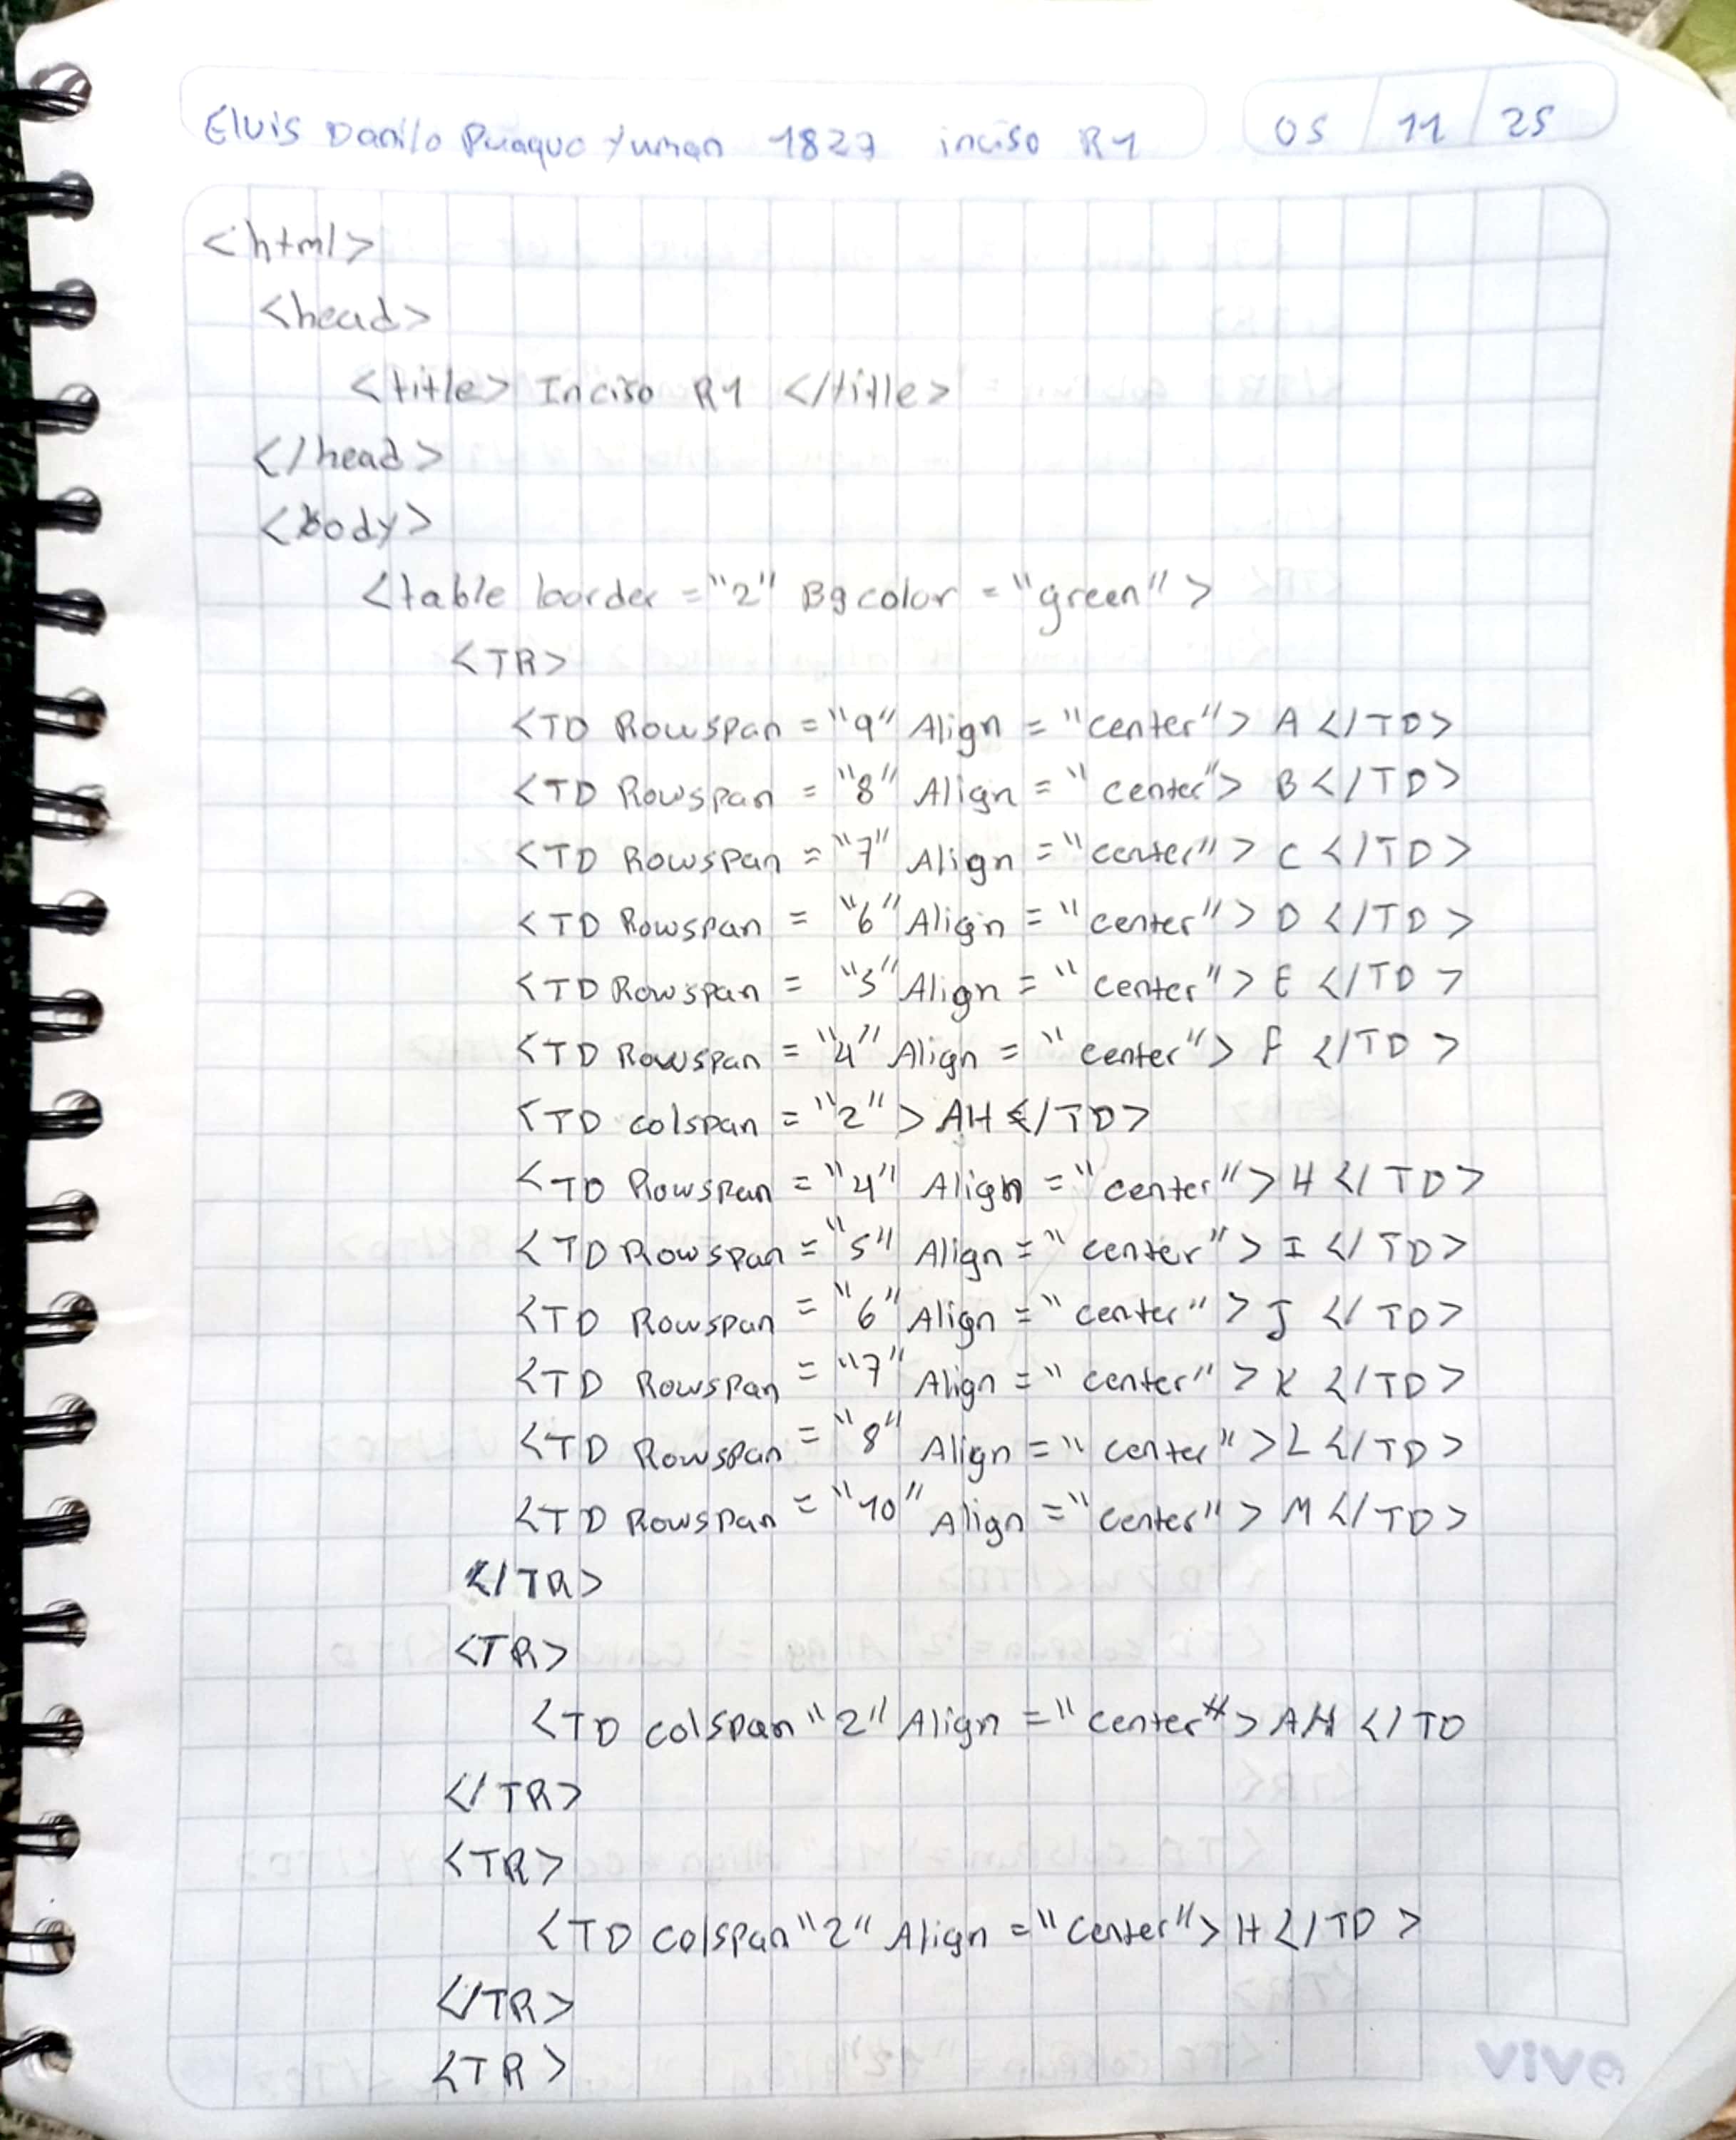 Elvis Danilo Yuman 1827 inciso R1 05 / 11 / 25
<html>
<head>
<title> Inciso R1 </title>
</head>
<body>
<table border = "2" Bgcolor = "green" >
<TR>
<TD Rowspan = "9" Align = "center"> A </TD>
<TD Rowspan = "8" Align = "center"> B </TD>
<TD Rowspan = "7" Align = "center"> C </TD>
<TD Rowspan = "6" Align = "center"> D </TD>
<TD Rowspan = "5" Align = "center"> E </TD>
<TD Rowspan = "4" Align = "center"> F </TD>
<TD colspan = "2" > AH </TD>
<TD Rowspan = "4" Align = "center"> H </TD>
<TD Rowspan = "5" Align = "center"> I </TD>
<TD Rowspan = "6" Align = "center" > J </TD>
<TD Rowspan = "7" Align = "center" > K </TD>
<TD Rowspan = "8" Align = "center" > L </TD>
<TD Rowspan = "10" Align = "center" > M </TD>
</TR>
<TR>
<TD colspan "2" Align = "center"> AH </TD
</TR>
<TR>
<TD colspan "2" Align = "center"> H </TD >
</TR>
<TR>
vivo